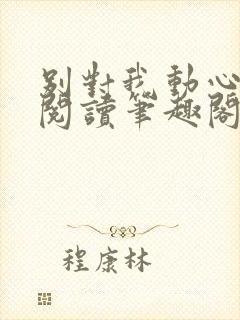 別對我動心
閱讀筆趣閣
程康林